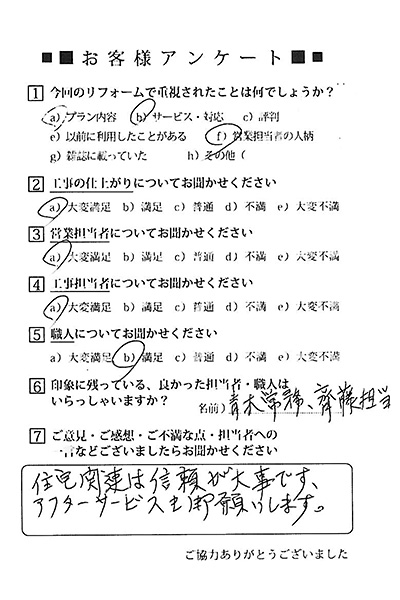 ■■お客様アンケート■■
1 今回のリフォームで重視されたことは何でしょうか？
a）プラン内容 b）サービス・対応 c）評判
e）以前に利用したことがある f）営業担当者の人柄
g）雑誌に載っていた h）その他（
2 工事の仕上がりについてお聞かせください
a）大変満足 b）満足 c）普通 d）不満 e）大変不満
3 営業担当者についてお聞かせください
a）大変満足 b）満足 c）普通 d）不満 e）大変不満
4 工事担当者についてお聞かせください
a）大変満足 b）満足 c）普通 d）不満 e）大変不満
5 職人についてお聞かせください
a）大変満足 b）満足 c）普通 d）不満 e）大変不満
6 印象に残っている、良かった担当者・職人は
いらっしゃいますか？ 名前）青木常務、齊藤担当
7 ご意見・ご感想・ご不満な点・担当者への
一言などございましたらお聞かせください
住宅関連は信頼が大事です、
アフターサービスも御願いします。
ご協力ありがとうございました